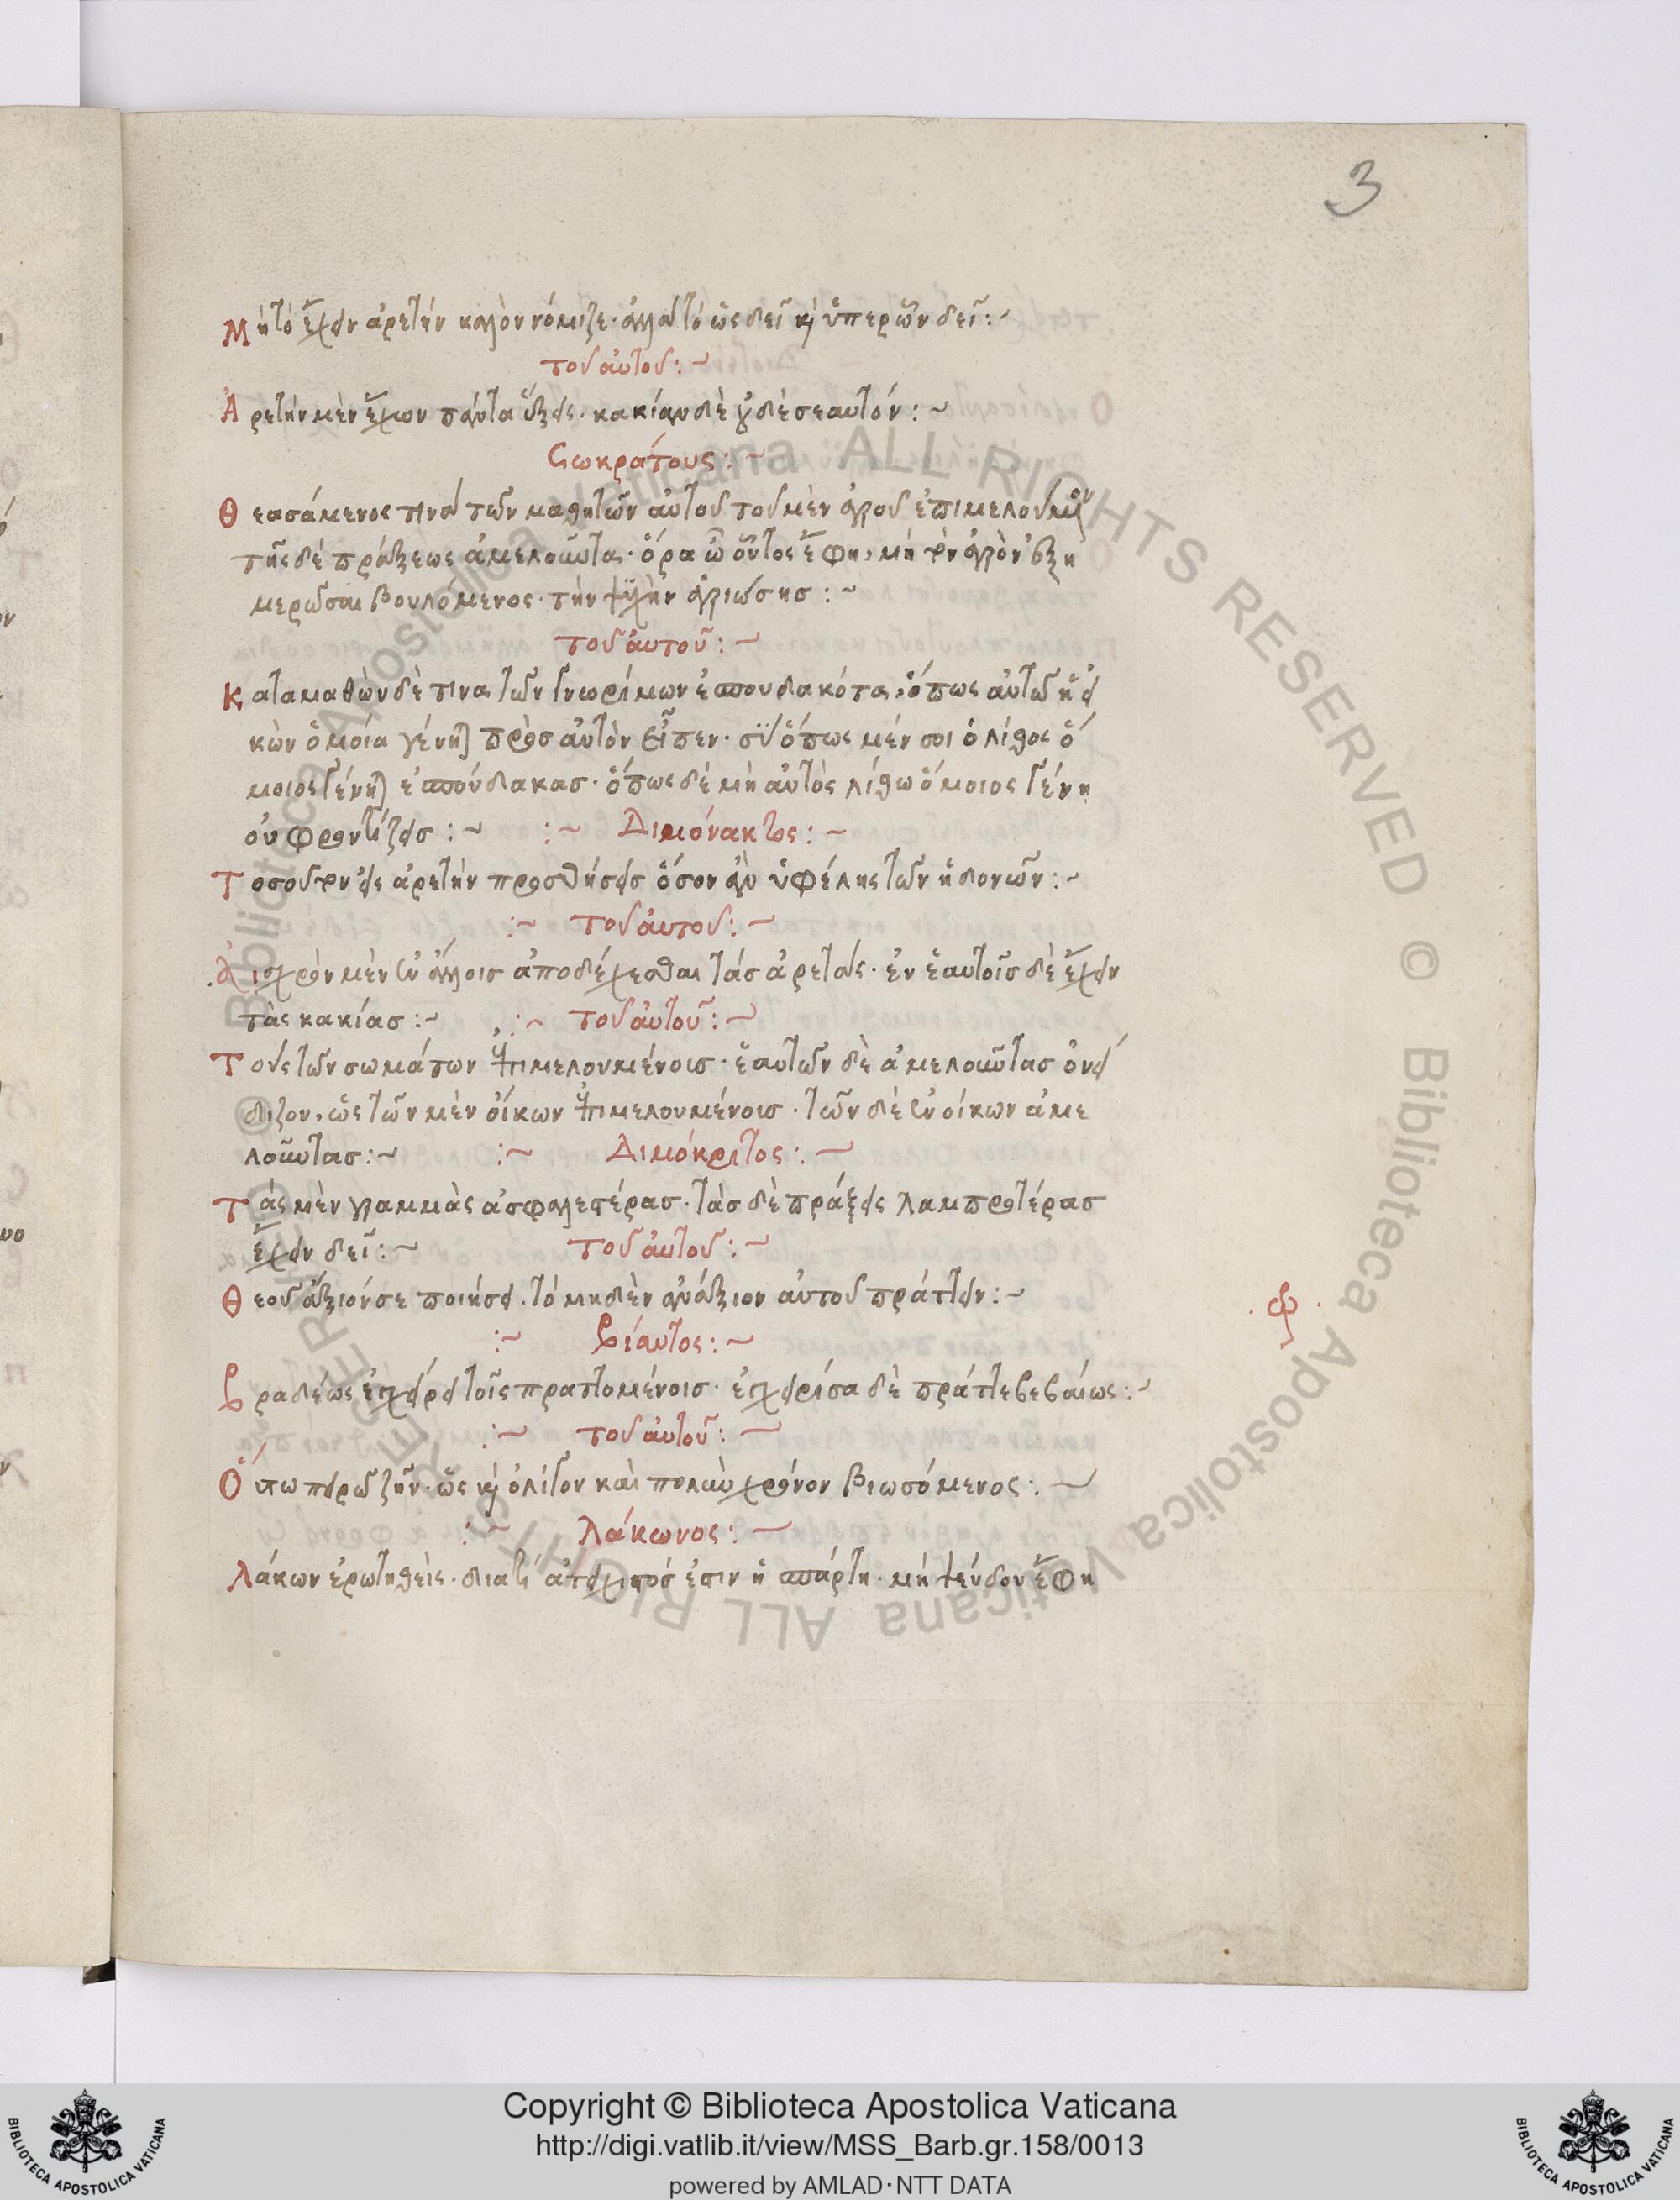 3
Μὴ τὸ ἔχειν ἀρετὴν καλὸν νόμιζε· ἀλλὰ τὸ ὡς δεῖ καὶ ὑπερ ὧν δεῖ:~
τοῦ αὐτοῦ:~
Ἀρετὴν μὲν ἔχων πάντα ἕξεις· κακίαν δὲ οὐδὲ σεαυτόν:~
Σωκράτους:~
Θεασάμενος τινὰ τῶν μαθητῶν αὐτοῦ τοῦ μὲν ἀγροῦ ἐπιμελούμενον
τῆς δὲ πράξεως ἀμελοῦντα· ὅρα ὦ οὗτος ἔφη, μὴ τὸν ἀγρὸν ἐξη
μερῶσαι βουλόμενος· τὴν ψυχὴν ἀγριώσησ:~
τοῦ ἀυτοῦ:~
Καταμαθὼν δὲ τινας τῶν γνωρίμων ἐσπουδακότα, ὅπως αὐτῶ ἡ εἰ
κὼν ὁμοία γένηται πρὸσ αὐτὸν εἶπεν· σὺ ὅπως μέν σοι ὁ λίθος ὅ
μοιος γένηται ἐσπούδακασ· ὅπως δὲ μὴ αὐτὸς λίθω ὅμοιος γένη
οὐ φροντίζεισ:~ :~ Διμόνακτος:~
Τοσοῦτον εἰς ἀρετὴν προσθήσεις ὅσον ἂν ὑφέλης τῶν ἡδονῶν:~
:~ τοῦ ἀυτοῦ:~
Αἰσχρὸν μὲν ἐν ἄλλοισ ἀποδέχεσθαι τὰσ ἀρετάς· ἐν ἑαυτοῖσ δὲ ἔχειν
τὰς κακίασ:~ :~ τοῦ αὐτοῦ:~
Τοὺς τῶν σωμάτων ἐπιμελουμένοισ· ἑαυτῶν δὲ ἀμελοῦντασ ὀνεί
διζον, ὡς τῶν μὲν οἴκων ἐπιμελουμένοισ· τῶν δὲ ἐν οἴκων ἀμε
λοῦντασ:~ :~ Διμόκριτος:~
Τὰς μὲν γραμμὰς ἀσφαλεστέρασ· τὰσ δὲ πράξεις λαμπροτέρασ
ἔχειν δεῖ:~ τοῦ αὐτοῦ:~
Θεοῦ ἄξιόν σε ποιήσει· τὸ μηδὲν ἀνάξιον αὐτοῦ πράττειν:~
:~ βίαντος:~
βραδέως ἐγχείρει τοῖς πραττομένοισ· ἐγχειρίσα δὲ πράττε βεβαίως:~
:~ τοῦ αὐτοῦ:~
Ὅυτω πειρῶ ζῆν· ὡς καὶ ὀλίγον καὶ πολὺν χρόνον βιωσόμενος:~
:~ Λάκωνος:~
Λάκων ἐρωτηθεὶς· διατί ἀτείχιστός ἐστιν ἡ σπάρτη· μὴ ψεύδου ἔφη
Copyright © Biblioteca Apostolica Vaticana
http://digi.vatlib.it/view/MSS_Barb.gr.158/0013
powered by AMLAD·NTT DATA